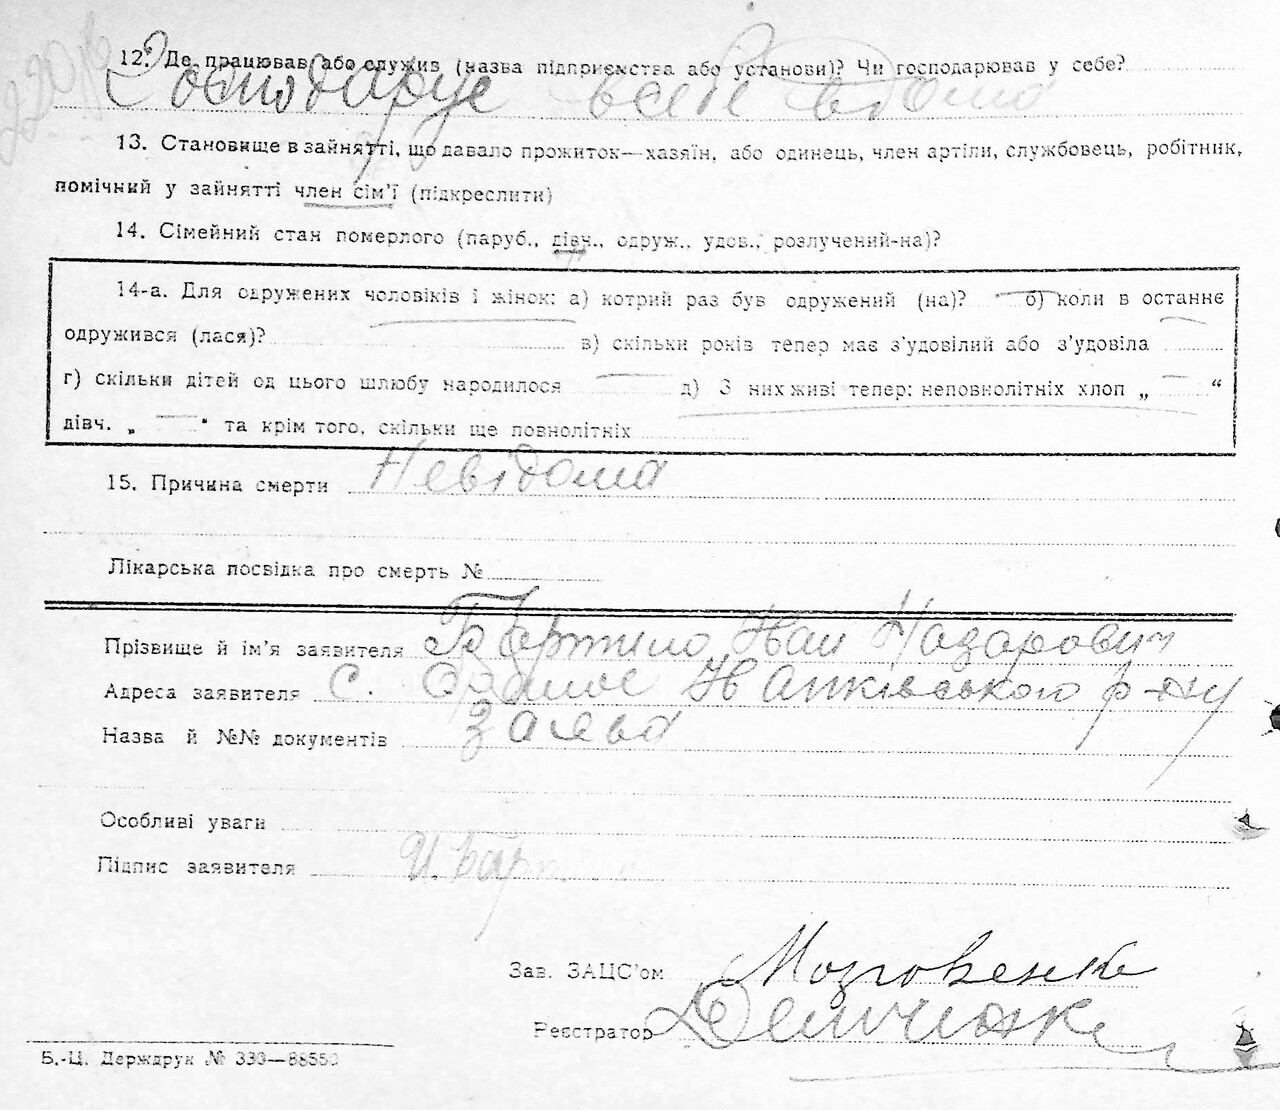 12. Де працював або служив (назва підприємства або установи)? Чи господарював у себе?
Господарує в себе вдома
13. Становище в зайнятті, що давало прожиток—хазяїн, або одинець, член артіли, службовець, робітник,
помічний у зайнятті член сім'ї (підкреслити)
14. Сімейний стан померлого (паруб., дівч., одруж., удов., розлучений-на)?
14-а. Для одружених чоловіків і жінок: а) котрий раз був одружений (на)? — б) коли в останнє
одружився (лася)? в) скільки років тепер має з'удовілий або з'удовіла
г) скільки дітей од цього шлюбу народилося — д) З них живі тепер: неповнолітніх хлоп „ — “
дівч. „ — “ та крім того, скільки ще повнолітніх
15. Причина смерти Невідома
Лікарська посвідка про смерть №
Прізвище й ім'я заявителя Іван Назарович
Адреса заявителя с. р-ну
Назва й №№ документів заява
Особливі уваги
Підпис заявителя И. Барт
Зав. ЗАЦС'ом Мозговенко
Реєстратор
Б.-Ц. Держдрук № 330—8855